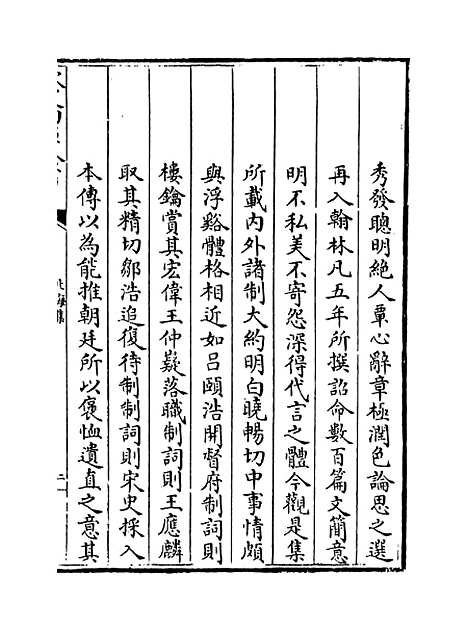 秀發聰明絶人覃心辭章極潤色論思之選
再入翰林凡五年所撰詔命數百篇文簡意
明不私美不寄怨深得代言之體今觀是集
所載内外諸制大約明白曉暢切中事情頗
與浮谿體格相近如吕頤浩開督府制詞則
樓鑰賞其宏偉王仲嶷落職制詞則王應麟
取其精切鄒浩追復待制制詞則宋史採入
本傳以為能推朝廷所以褒恤遺直之意其
北海集